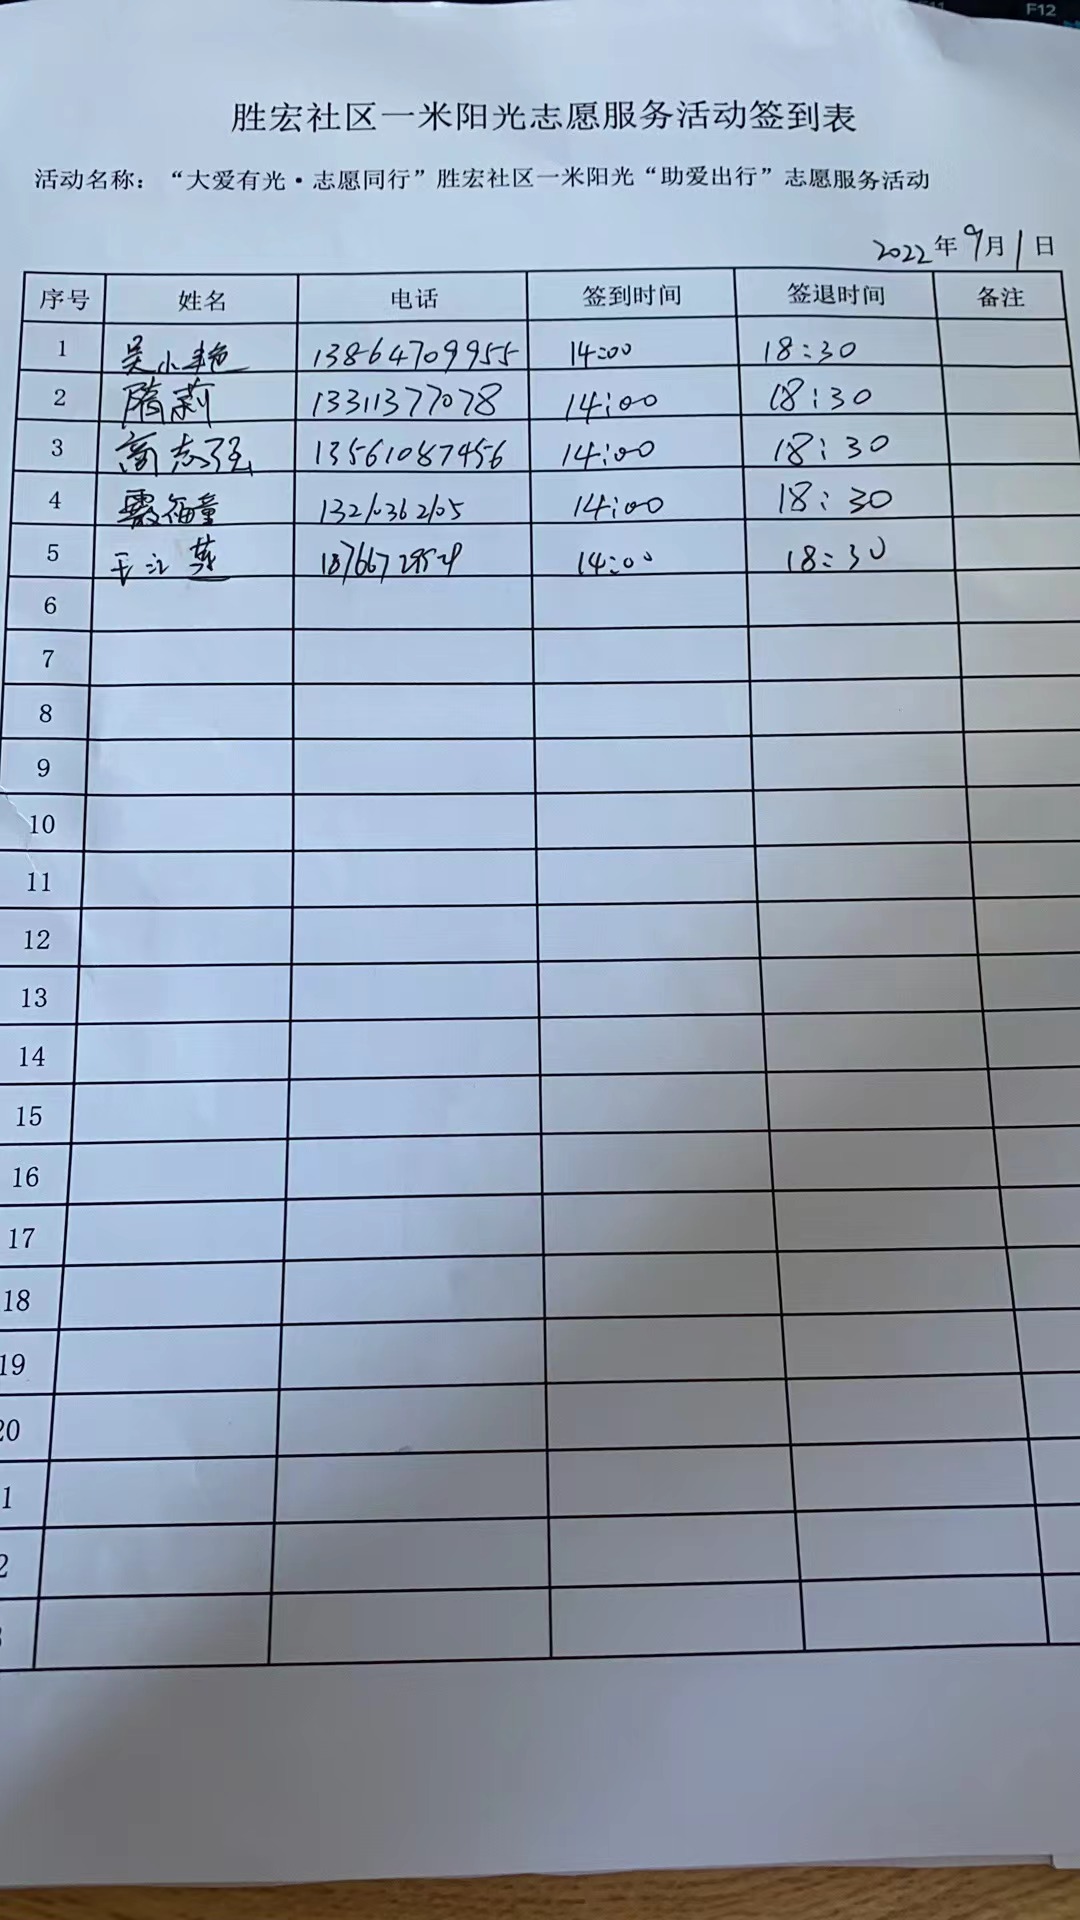 F12
胜宏社区一米阳光志愿服务活动签到表
活动名称：“大爱有光·志愿同行”胜宏社区一米阳光“助爱出行”志愿服务活动
2022年9月1日
序号 姓名 电话 签到时间 签退时间 备注
1 吴小艳 13864709955 14:00 18:30
2 隋莉 13311377078 14:00 18:30
3 高志强 13561087456 14:00 18:30
4 13210362105 14:00 18:30
5 14:00 18:30
6
7
8
9
10
11
12
13
14
15
16
17
18
19
20
1
2